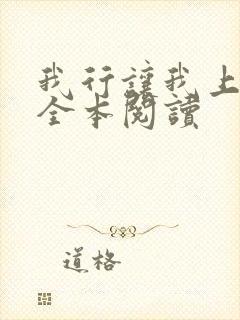 我行讓我上
全本閱讀
道格